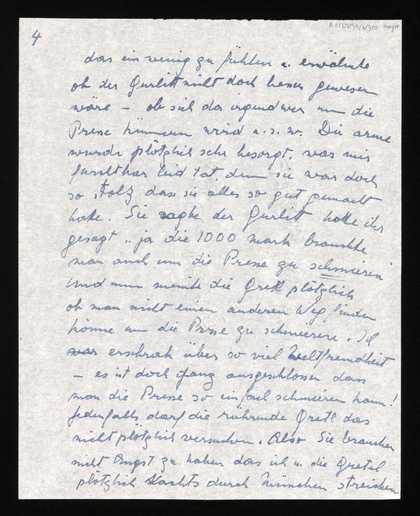 4
das ein wenig zu fühlen u. erwähnte
ob der Gurlitt nicht doch besser gewesen
wäre – ob sich da irgendwer um die
Presse kümmern wird u.s.w. Die arme
wurde plötzlich sehr besorgt, was mir
furchtbar leid tat, denn sie war doch
so stolz dass sie alles so gut gemacht
hatte. Sie sagte der Gurlitt hatte ihr
gesagt „ja die 1000 Mark brauchte
man auch um die Presse zu schmieren"
Und nun meinte die Gretl plötzlich
ob man nicht einen anderen Weg finden
könne um die Presse zu schmieren. Ich
war erschrak über so viel Weltfremdheit
– es ist doch ganz ausgeschlossen dass
man die Presse so einfach schmieren kann!
Jedenfalls darf die rührende Gretl das
nicht plötzlich versuchen. Also Sie brauchen
nicht Angst zu haben dass ich u. die Gretel
plötzlich Nachts durch München streichen